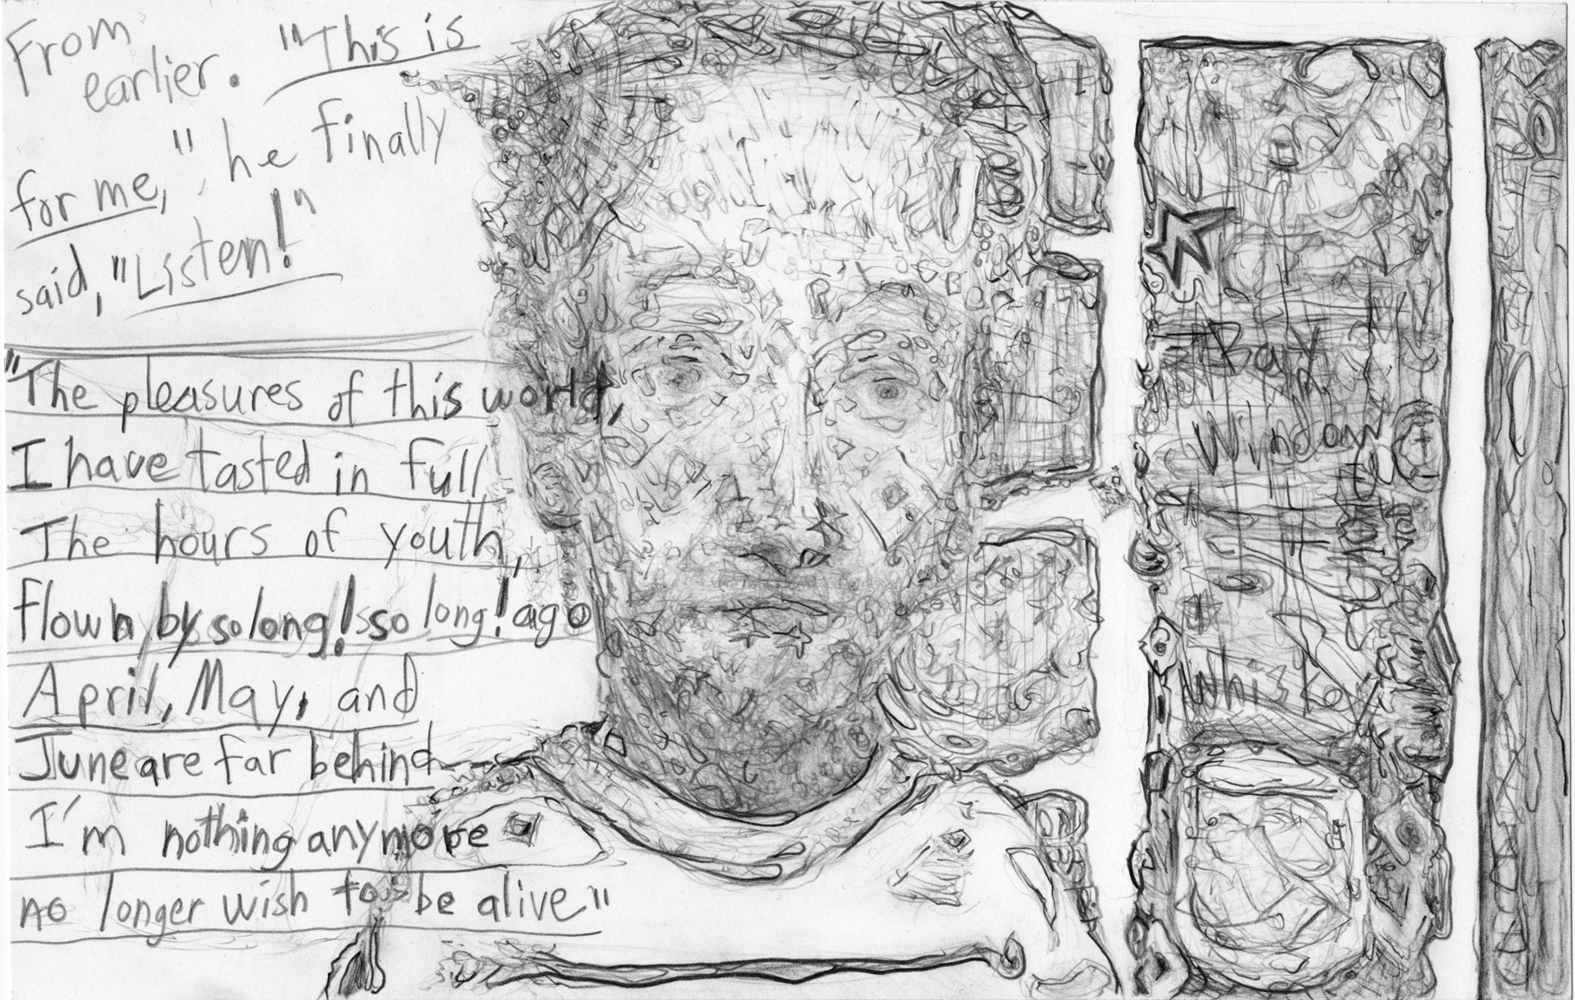 From
earlier. "This is
for me," he finally
said, "Listen!"
"The pleasures of this world,
I have tasted in full
The hours of youth,
flown by so long! so long! ago
April, May, and
June are far behind
I'm nothing anymore
no longer wish to be alive"
Bay
Window
Whiskey